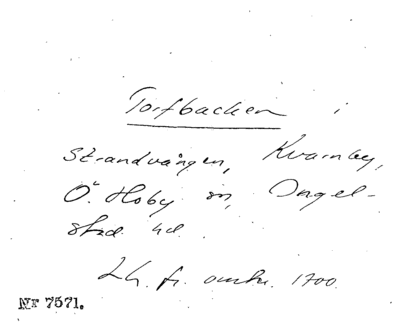 Torfbacken i
Strandvången, Kvarnby,
Ö. Hoby sn, Ingel-
stad hd.
Lh. fr. omkr. 1700.
Nr 7571.